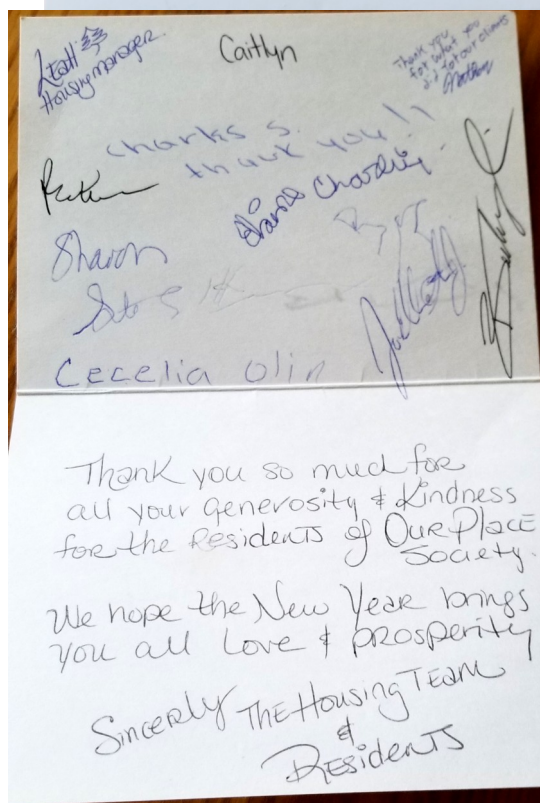 LEAH
Housing manager.
Caitlyn
Thank you
for what you
did for our clients
Charles S.
thank you!!
Charlie
Sharon
Cecelia Olin
Thank you so much for
all your generosity & Kindness
for the Residents of OUR PLACE
Society.
We hope the New Year brings
you all Love & prosperity
Sincerly THE HOUSING TEAM
&
RESidents